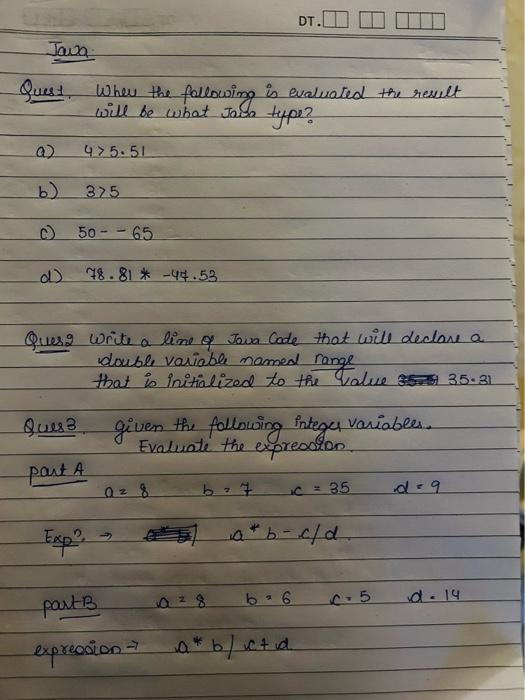 DT.
Java
Ques1. When the following is evaluated the result
will be what Java type?
a) 4>5.51
b) 3>5
c) 50 - - 65
d) 78.81 * -47.53
Ques2 Write a line of Java Code that will declare a
double variable named range
that is initialized to the value 35.31
Ques3. given the following integer variables.
Evaluate the expression.
part A
a = 8 b = 7 c = 35 d = 9
Exp?. → a * b - c/d
part B a = 8 b = 6 c = 5 d = 14
expression → a * b / c + d